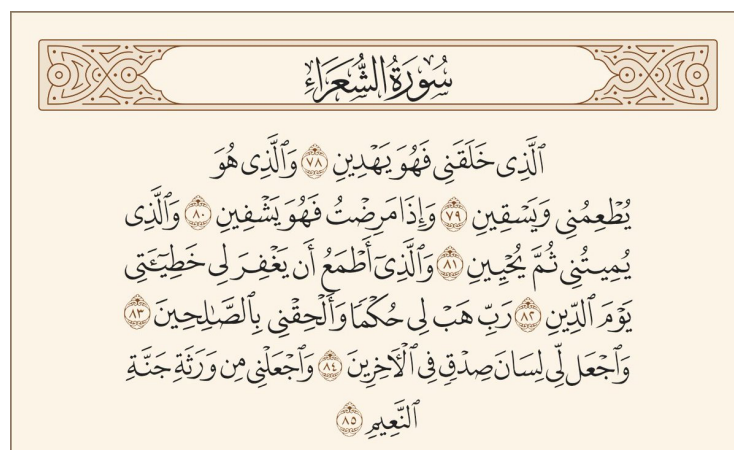 سُورَةُ الشُّعَرَاءِ
ٱلَّذِى خَلَقَنِى فَهُوَ يَهْدِينِ ٧٨ وَٱلَّذِى هُوَ
يُطْعِمُنِى وَيَسْقِينِ ٧٩ وَإِذَا مَرِضْتُ فَهُوَ يَشْفِينِ ٨٠ وَٱلَّذِى
يُمِيتُنِى ثُمَّ يُحْيِينِ ٨١ وَٱلَّذِىٓ أَطْمَعُ أَن يَغْفِرَ لِى خَطِيٓـَٔتِى
يَوْمَ ٱلدِّينِ ٨٢ رَبِّ هَبْ لِى حُكْمًا وَأَلْحِقْنِى بِٱلصَّـٰلِحِينَ ٨٣
وَٱجْعَل لِّى لِسَانَ صِدْقٍ فِى ٱلْـَٔاخِرِينَ ٨٤ وَٱجْعَلْنِى مِن وَرَثَةِ جَنَّةِ
ٱلنَّعِيمِ ٨٥